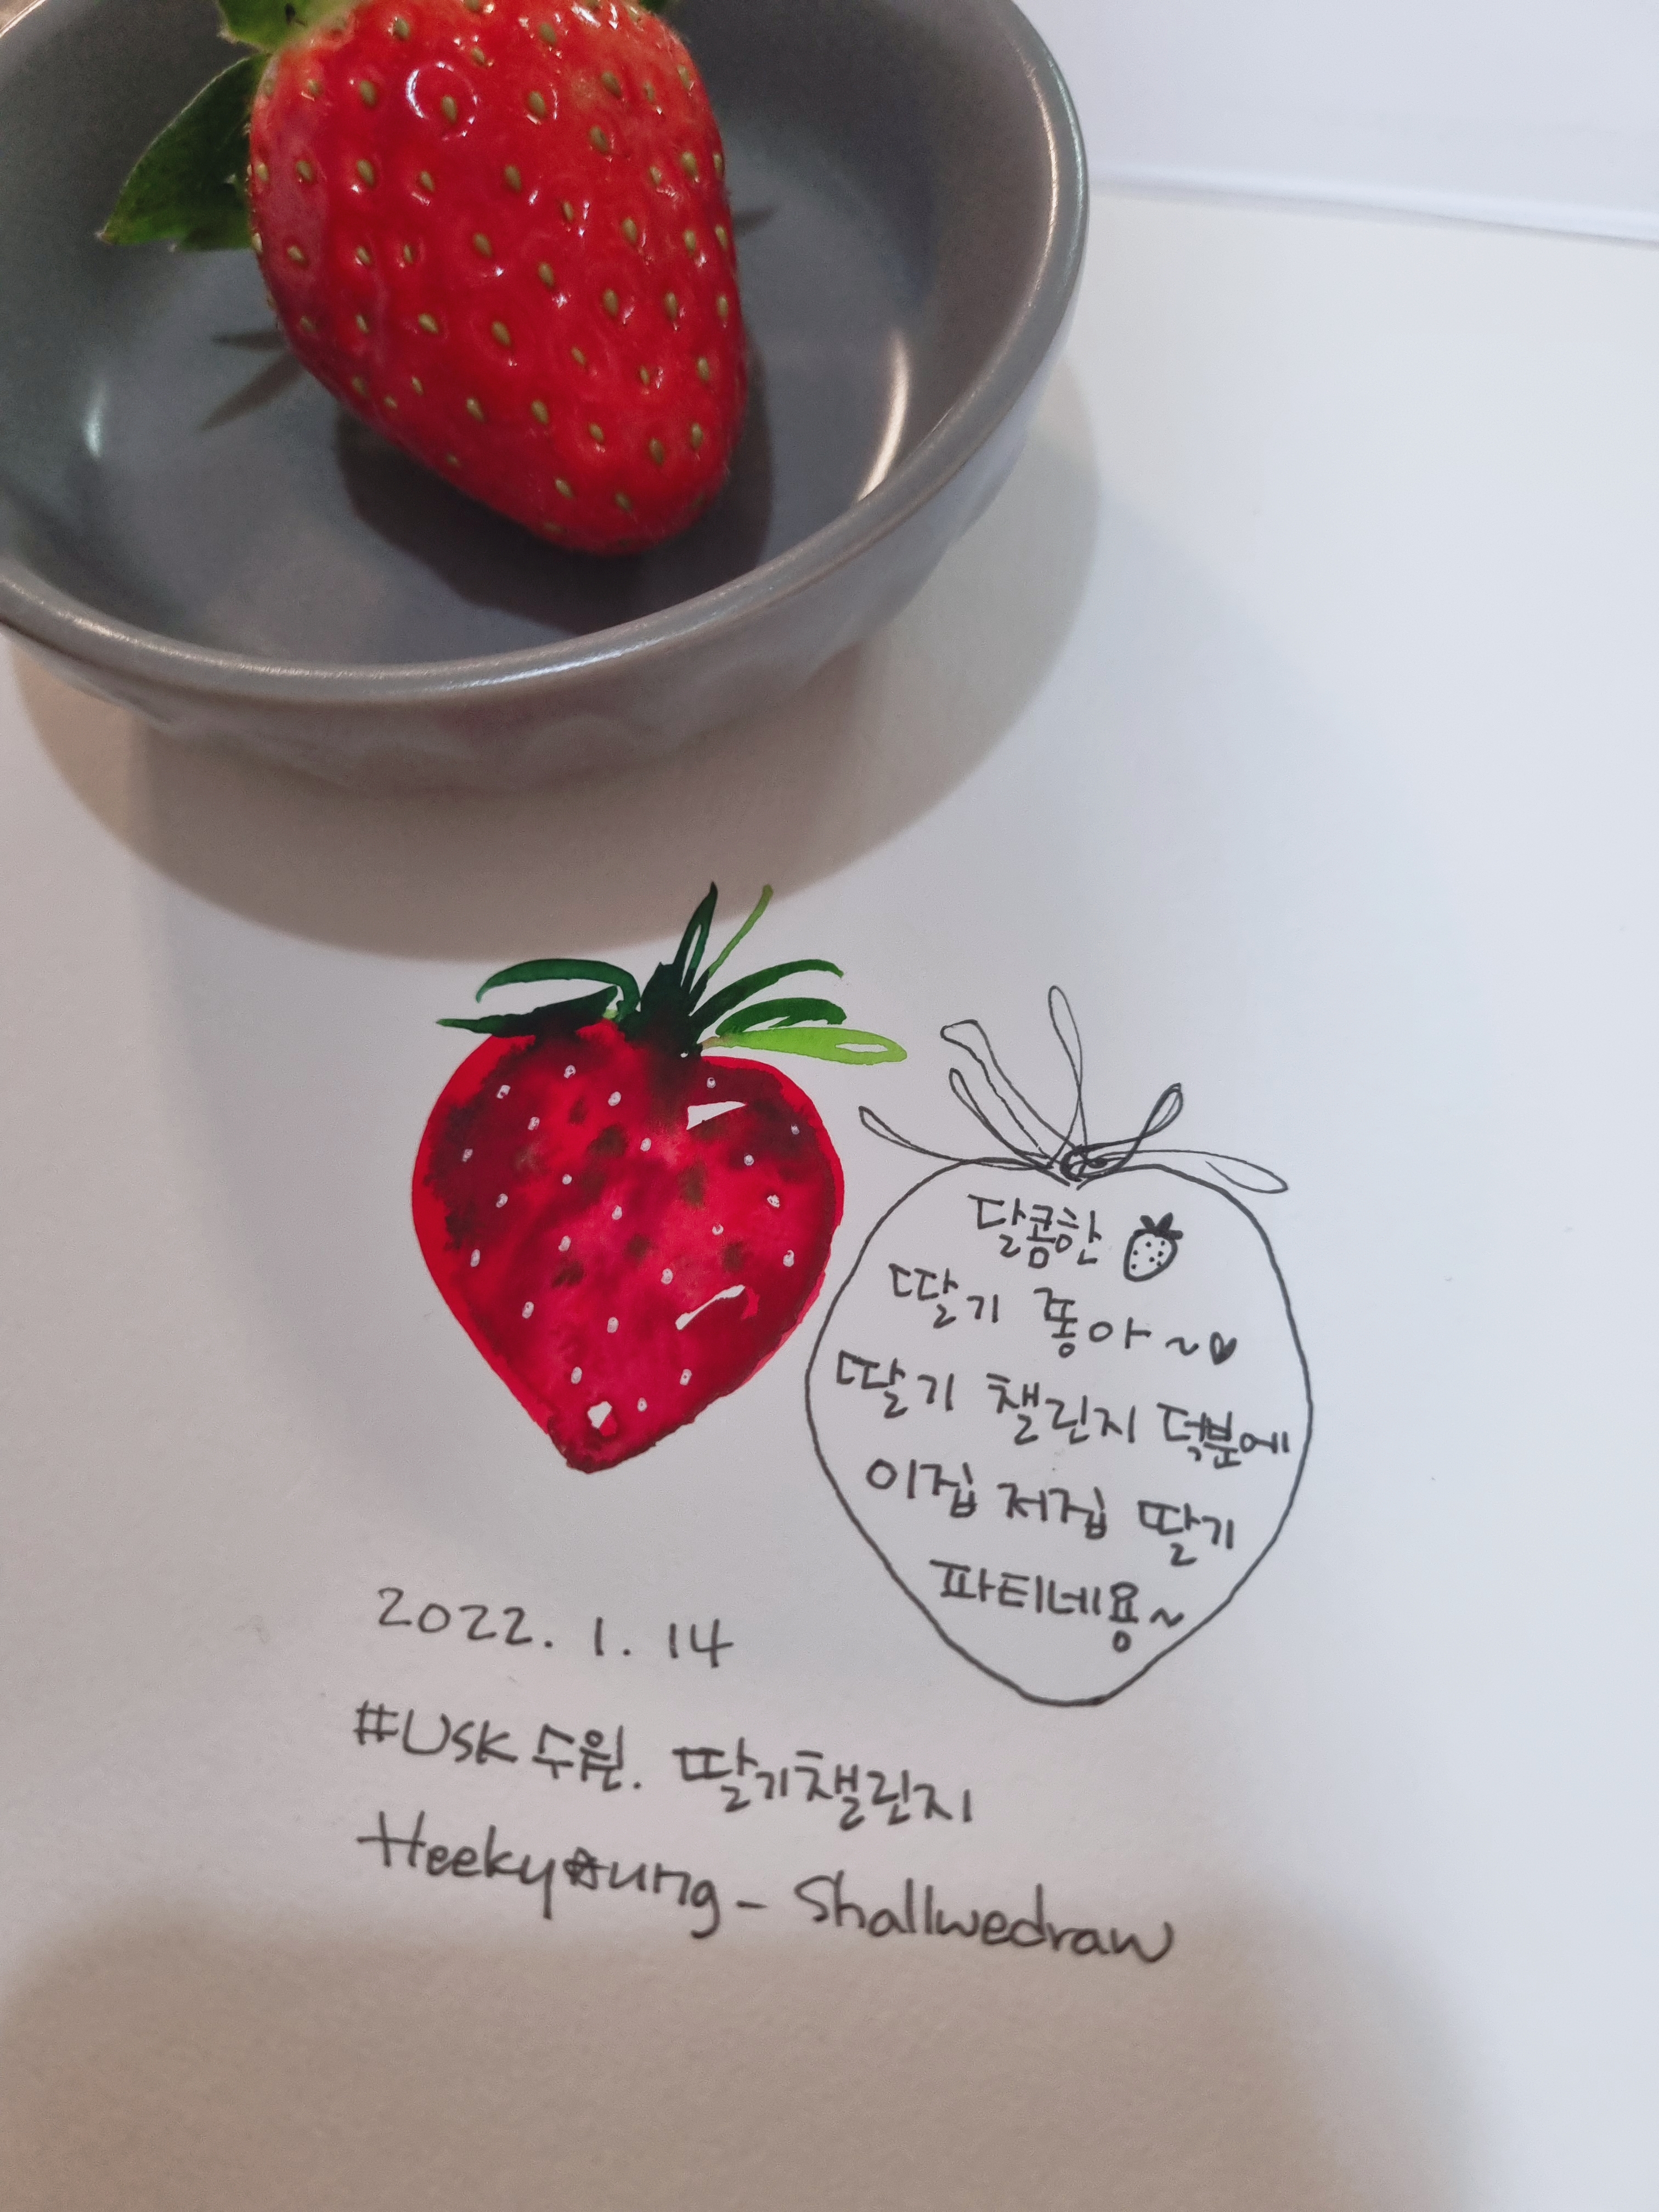 달콤한
딸기 좋아~♡
딸기 챌린지 덕분에
이집 저집 딸기
파티네용~
2022. 1. 14
#USK 수원. 딸기챌린지
Heeky☆ung - Shallwedraw